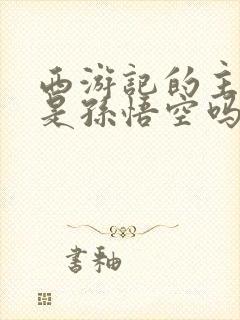 西游記的主
是孫悟空吗
書釉